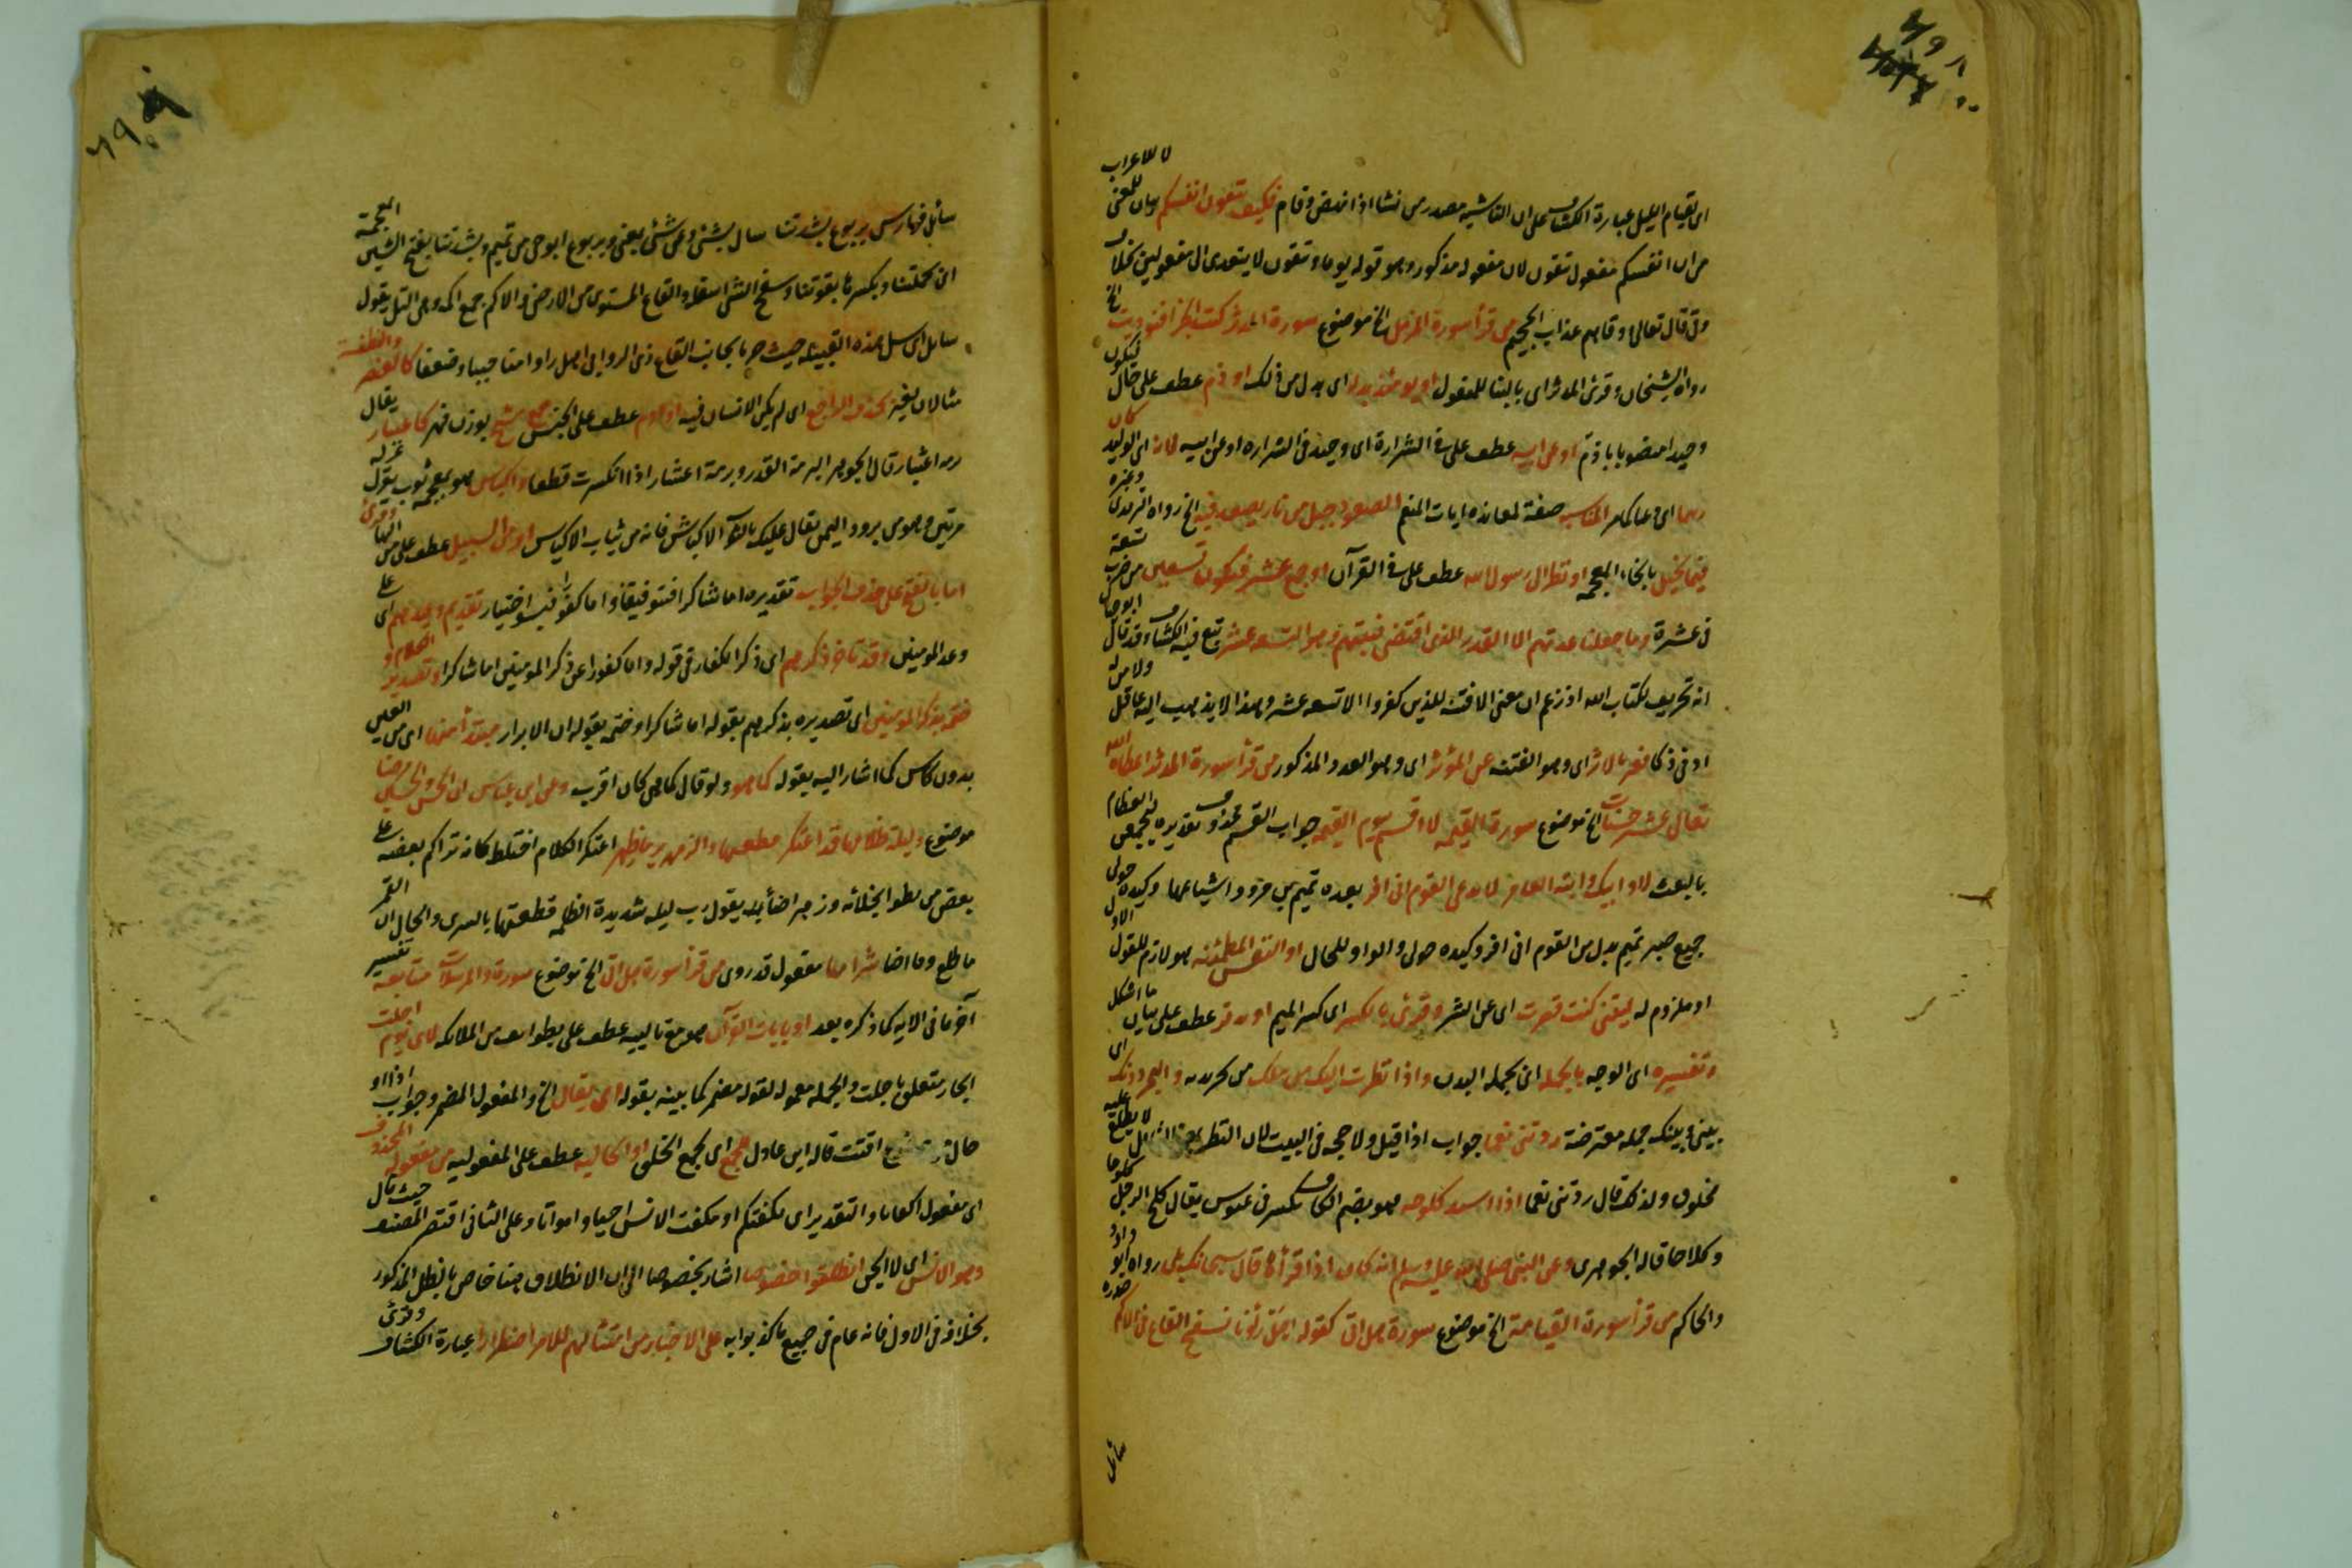 اى لقيام الليل عبارة الكشاف على ان الناشية مصدر من نشا اذا نهض وقام فكيف تتقون انفسكم بيان للمعنى لا للاعراب
من ان انفسكم مفعول تتقون لان مفعوله مذكور وهو قوله يوما وتتقون لا يتعدى الى مفعولين بخلاف
وقى قال تعالى وقاهم عذاب الجحيم من قرأ سورة المزمل الخ موضوع سورة المدثر كنت بحراء فنوديت الخ
رواه الشيخان وقرئ المدثر اى بالبنا للمفعول او يومئذ بدل اى بدل من ذلك او ذم عطف على حال فيكون
وحيدا منصوبا باذم او عن ابيه عطف على فى الشرارة اى وحيد فى الشرارة او عن ابيه لانه اى الوليد كان
صفة لمعاندة ايات المنعم الصعود جبل من نار يصعد فيه الخ رواه الترمذى وغيره
فيما يخيل بالخاء المعجمة او نظر الى رسول الله عطف على فى القرآن او جمع عشر فيكون تسعين من ضرب تسعة
فى عشرة وما جعلنا عدتهم الا القدر الذى اقتضى فتنتهم وهو التسعة عشر تبع فيه الكشاف وقد قال ابو حيان
انه تحريف لكتاب الله اذ زعم ان معنى الا فتنة للذين كفروا الا تسعة عشر وهذا لا يذهب اليه عاقل ولا من له
ادنى ذكا فعبر بالاثر اى وهو الفتنة عن المؤثر اى وهو العدد المذكور من قرأ سورة المدثر اعطاه الله
تعالى عشر حسنات الخ موضوع سورة القيمة لا اقسم بيوم القيمة جواب القسم محذوف تقديره ليجمعن العظام
بالبعث لا وابيك ابنة العامرى لا يدعى القوم انى افر بعده تميم بن مر واشياعها وكنده حولى
جميع صبر تميم بدل من القوم انى افر وكنده حولى والواو للحال او النفس المطمئنة هو لازم للقول الاول
او ملزوم له ليتنى كنت قصرت اى عن الشر وقرئ بالكسر اى كسر الميم عطف على بيان ما اشكل
وتفسيره اى الوجه بالجملة اى بجملة البدن واذا نظرت اليك من ملك من تجريديه والبحر دونك اى
بينى وبينك جملة معترضة زدتنى نعما جواب اذا قيل ولا حجة فى البيت لان النظر
مخلوق ولذلك قال زدتنى نعما اذا اشتد كلوحه هو بضم الكاف تكسر فى عبوس يقال كلح الرجل كلوحا
وكلاحا قاله الجوهرى وعن النبى صلى الله عليه وسلم انه كان اذا قرأها قال سبحانك بلى رواه ابو داود
والحاكم من قرأ سورة القيامة الخ موضوع سورة هل اتى كقوله اهل رأونا بسفح القاع ذى الاكم صدره
سائل
سائل فوارس يربوع بشدتنا سال بشئ وعن شئ بمعنى ويربوع ابو حى من تميم وبشدتنا بفتح الشين المعجمة
اى بحملتنا وبكسرها بقوتنا وسفح الشئ اسفله والقاع المستوى من الارض والاكم جمع اكمة وهى التل يقول
سائل اى سل هذه القبيلة كالعنصر والنطفة
مثالان لغير بحذف الراجع اى لم يكن الانسان فيه او ادم عطف على الجنس جمع مشج بوزن فهر كاعشار يقال
برمة اعشار قال الجوهرى البرمة القدر وبرمة اعشار اذا انكسرت قطعا واكباش هو بمعجمة ثوب يغزل غزله
مرتين وهو من برود اليمن يقال عليك بالثوب الاكباش فانه من ثياب الاكياس او من السبيل عطف على من الهاء وقرئ
اما بالفتح على حذف الجواب تقديره اما شاكرا فبتوفيقنا واما كفورا فبسوء اختياره تقديم وعيدهم اى على
وعد المومنين وقد تاخر ذكرهم اى ذكر الكفار فى قوله واما كفورا عن ذكر المومنين اما شاكرا وتصدير الكلام او
ختمه بذكر المومنين اى تصديره بذكرهم بقوله اما شاكرا وختمه بقوله ان الابرار مبتدأ منها اى من العين
بدون كاس كما اشار اليه بقوله كما هو ولو قال كما هى كان اقرب وعن ابن عباس ان الحسن والحسين مرضا
موضوع وليلة ظلامها قد اعتكر قطعتها والزمهرير ما ظهر اعتكر الكلام اختلط كانه تراكم بعضه على
بعض من بطو انجلائه وزهر اضاء يقول رب ليلة شديدة الظلمة قطعتها بالسرى والحال ان القمر
ما طلع وما اضا شرابها مفعول قدروى من قرأ سورة هل اتى الخ موضوع سورة والمرسلات متابعة تفسير
آخر ما فى الاية كما ذكره بعد او بايات القرآن عطف على بطوائف من الملائكة لاى يوم اجلت
الجار متعلق باجلت والجملة معمولة لقوله مضمر كما بينه بقوله اى يقال الخ والمفعول المضمر وجواب اذا او
حال من مرفوع اقتت قاله ابن عادل للجمع اى لجمع الخلق او الحالية عطف على المفعولية من مفعوله المحذوف
اى مفعول كفاتا والتقدير اى تكفتكم او تكفت الانس احياء وامواتا وعلى الثانى اقتصر المصنف حيث قال
وهو الانس اى لا الجن انطلقوا خصوصا اشار بخصوصا الى ان الانطلاق هنا خاص بالظل المذكور
بخلافه فى الاول فانه عام فى جميع ما كذبوا به على الاخبار من امتثالهم للامر اضطرارا عبارة الكشاف وقرئ